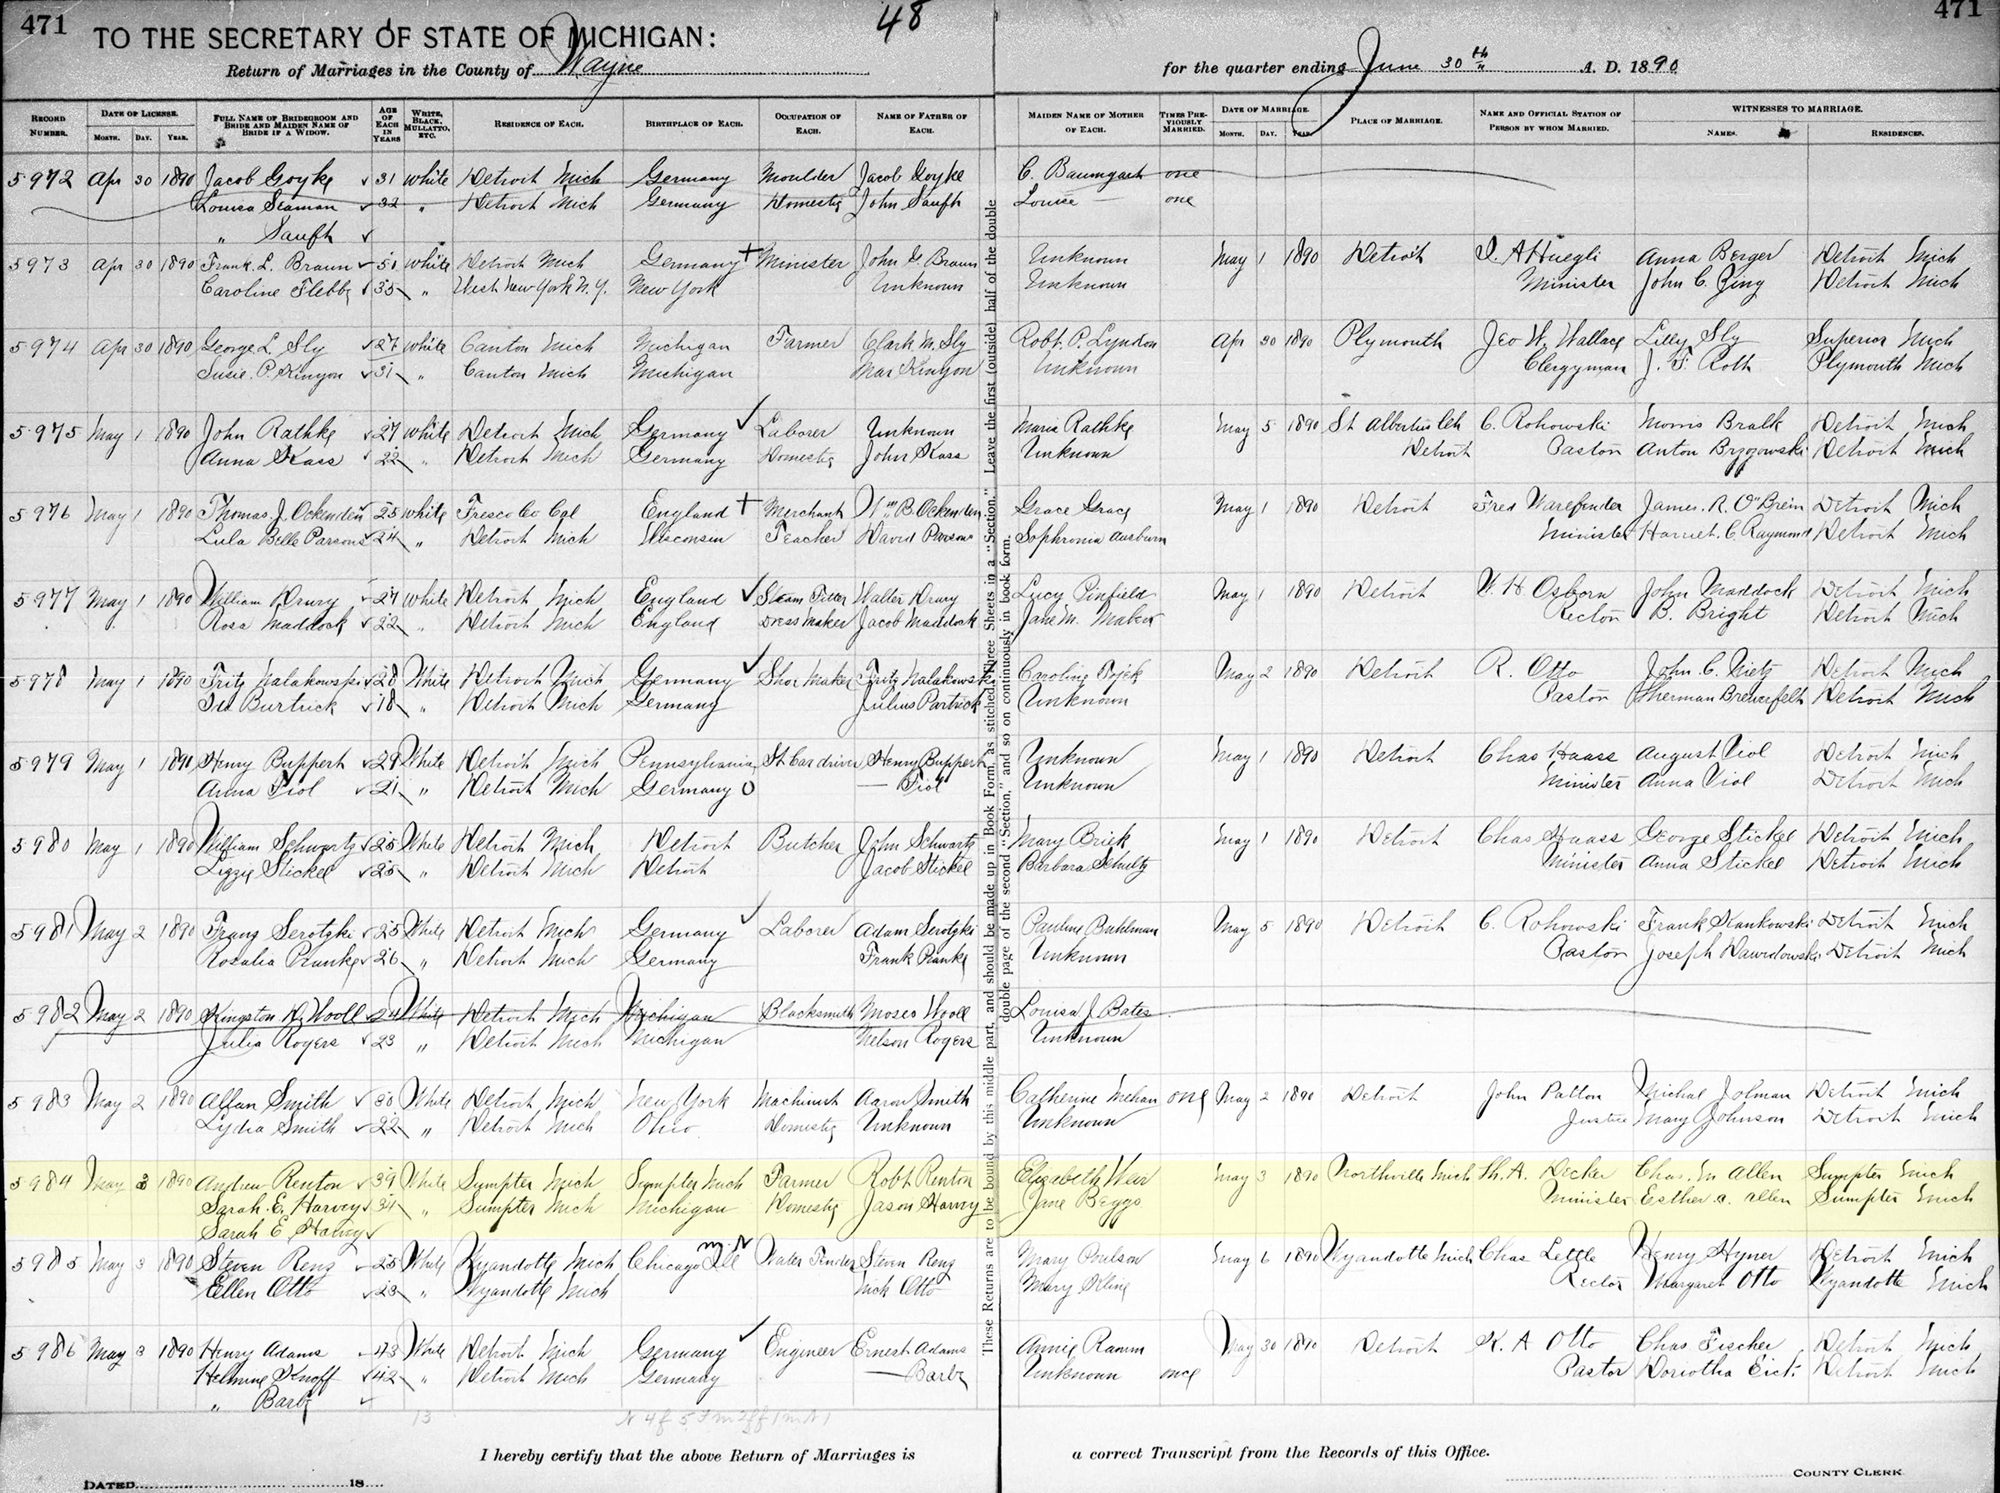 471 48 471
TO THE SECRETARY OF STATE OF MICHIGAN:
Return of Marriages in the County of Wayne for the quarter ending June 30th A. D. 1890
RECORD NUMBER. DATE OF LICENSE. MONTH. DAY. YEAR. FULL NAME OF BRIDEGROOM AND BRIDE AND MAIDEN NAME OF BRIDE IF A WIDOW. AGE OF EACH IN YEARS WHITE, BLACK, MULLATTO, ETC. RESIDENCE OF EACH. BIRTHPLACE OF EACH. OCCUPATION OF EACH. NAME OF FATHER OF EACH. MAIDEN NAME OF MOTHER OF EACH. TIMES PREVIOUSLY MARRIED. DATE OF MARRIAGE. MONTH. DAY. YEAR. PLACE OF MARRIAGE. NAME AND OFFICIAL STATION OF PERSON BY WHOM MARRIED. WITNESSES TO MARRIAGE. NAMES. RESIDENCES.
5972 Apr 30 1890 Jacob Goyke 31 White Detroit Mich Germany Moulder Jacob Goyke C. Baumgart one
Louisa Seaman 32 " Detroit Mich Germany Domestic John Saufh Louise — one
" Saufh
5973 Apr 30 1890 Frank L. Braun 50 White Detroit Mich Germany Minister John G. Braun Unknown May 1 1890 Detroit J. A Huegli Anna Berger Detroit Mich
Caroline Flebbe 35 " West New York N.Y. New York Unknown Unknown Minister John C. Detroit Mich
5974 Apr 30 1890 George L. Sly 27 White Canton Mich Michigan Farmer Clark M. Sly Robt. P. Lyndon Apr 30 1890 Plymouth Geo W. Wallace Lilly Sly Superior Mich
Susie. P. Kinyon 31 " Canton Mich Michigan Mar Kinyon Unknown Clergyman J. F. Roth Plymouth Mich
5975 May 1 1890 John Rathke 27 White Detroit Mich Germany Laborer Unknown Maria Rathke May 5 1890 St Albertus Ch C. Rohowski Morris Bralk Detroit Mich
Anna Kass 22 " Detroit Mich Germany Domestic John Kass Unknown Detroit Pastor Anton Brzozowski Detroit Mich
5976 May 1 1890 Thomas J. Ockenden 25 White Fresco Co Cal England Merchant Wm B. Ockenden Grace Grace May 1 1890 Detroit Fred Warefender James. R. O'Brein Detroit Mich
Lula Belle Parsons 24 " Detroit Mich Wisconsin Teacher David Parsons Sophronia Ausburn Minister Harriet. C Raymond Detroit Mich
5977 May 1 1890 William Drury 27 White Detroit Mich England Steam Fitter Walter Drury Lucy Pinfield May 1 1890 Detroit W. H Osborn John Maddock Detroit Mich
Rosa Maddock 22 " Detroit Mich England Dress Maker Jacob Maddock Jane M. Rector B. Bright Detroit Mich
5978 May 1 1890 Fritz Walakowski 28 White Detroit Mich Germany Shoe Maker Fritz Walakowski Caroline May 2 1890 Detroit R. Otto John C. Nietz Detroit Mich
Burtrick 18 " Detroit Mich Germany Julius Partrick Unknown Pastor Detroit Mich
5979 May 1 1890 Henry Buppert 29 White Detroit Mich Pennsylvania St Car driver Henry Buppert Unknown May 1 1890 Detroit Chas Haass August Viol Detroit Mich
Anna Fiol 21 " Detroit Mich Germany — Fiol Unknown Minister Anna Viol Detroit Mich
5980 May 1 1890 William Schwartz 25 White Detroit Mich Detroit Butcher John Schwartz Mary Brick May 1 1890 Detroit Chas Haass George Stickel Detroit Mich
Lizzie Stickel 25 " Detroit Mich Detroit Jacob Stickel Barbara Schultz Minister Anna Stickel Detroit Mich
5981 May 2 1890 Franz Serotzki 25 White Detroit Mich Germany Laborer Adam Serotzki Pauline Buhlman May 5 1890 Detroit C. Rohowski Frank Kankowski Detroit Mich
Rosalia Pranke 26 " Detroit Mich Germany Frank Pranke Unknown Pastor Joseph Dawidowski Detroit Mich
5982 May 2 1890 Kingston H. Wooll 24 White Detroit Mich Michigan Blacksmith Moses Wooll Louisa J. Bates
Julia Rogers 23 " Detroit Mich Michigan Nelson Rogers Unknown
5983 May 2 1890 Allan Smith 30 White Detroit Mich New York Machinist Aaron Smith Catherine Mehan one May 2 1890 Detroit John Patton Michal Jolman Detroit Mich
Lydia Smith 22 " Detroit Mich Ohio Domestic Unknown Unknown Justice Mary Johnson Detroit Mich
5984 May 3 1890 Andrew Renton 39 White Sumpter Mich Sumpter Mich Farmer Robt Renton Elizabeth Weir May 3 1890 Northville Mich Th. A. Decker Chas. M Allen Sumpter Mich
Sarah. E. Harvey 31 " Sumpter Mich Michigan Domestic Jason Harvey Jane Beggs Minister Esther a. Allen Sumpter Mich
Sarah E Harvey
5985 May 3 1890 Steven Renz 25 White Wyandotte Mich Chicago Ill Water Tender Steven Renz Mary Poulson May 6 1890 Wyandotte Mich Chas Lettle Henry Hyner Detroit Mich
Ellen Otto 23 " Wyandotte Mich Nick Otto Mary Kline Rector Margaret Otto Wyandotte Mich
5986 May 3 1890 Henry Adams 43 White Detroit Mich Germany Engineer Ernest Adams Annie Ramm May 30 1890 Detroit K. A Otto Chas Fischer Detroit Mich
Helmine Knoff 42 " Detroit Mich Germany — Barbe Unknown once Pastor Doriotha Eict. Detroit Mich
" Barbe
13
These Returns are to be bound by this middle part, and should be made up in Book Form, as stitched, Three Sheets in a "Section." Leave the first (outside) half of the double
double page of the second "Section," and so on continuously in book form.
I hereby certify that the above Return of Marriages is a correct Transcript from the Records of this Office.
DATED 18 COUNTY CLERK